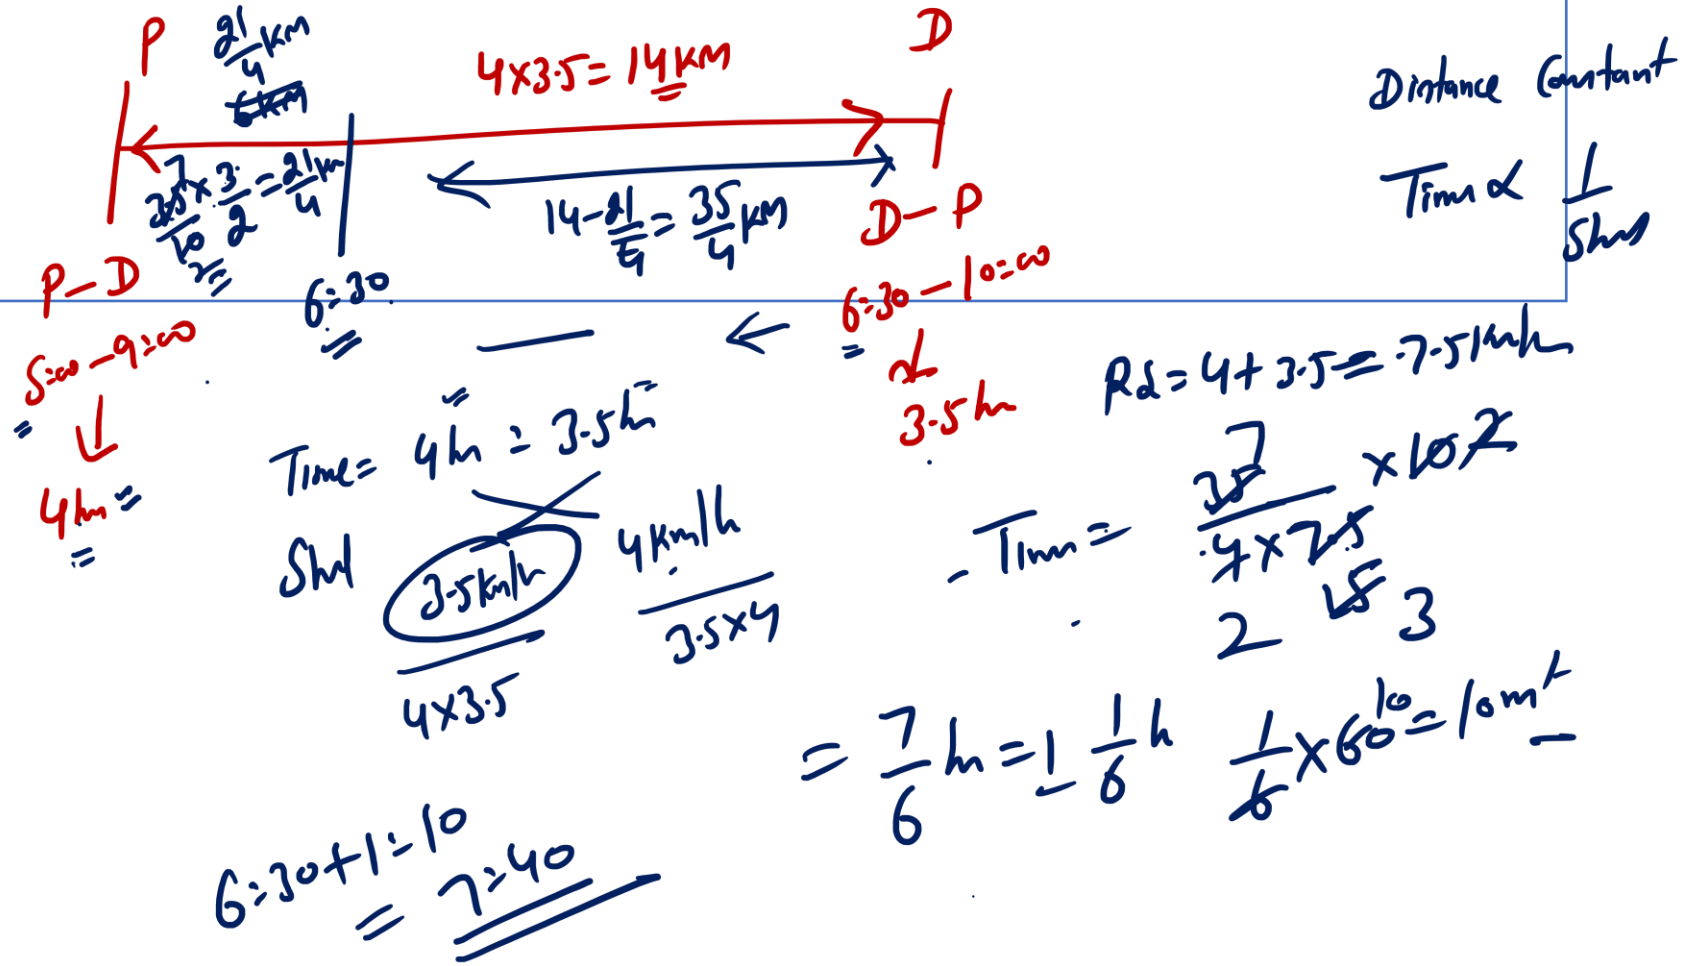 P
21/4 km
6km
4×3.5=14km
D
Distance Constant
Time ∝ 1/Speed
7
35/10 × 3/2 = 21/4 km
2
14-21/4 = 35/4 km
D-P
P-D
6:30
6:30-10:00
5:00-9:00
3.5h
4hr
Rd=4+3.5=7.5km/h
Time = 4hr : 3.5hr
3.5km/h
4km/h
4×3.5
3.5×4
Time = 35/4×7.5 ×10 2
7
15
2
3
= 7/6 hr = 1 1/6 h
1/6×60=10mt
10
6:30+1:10
= 7:40